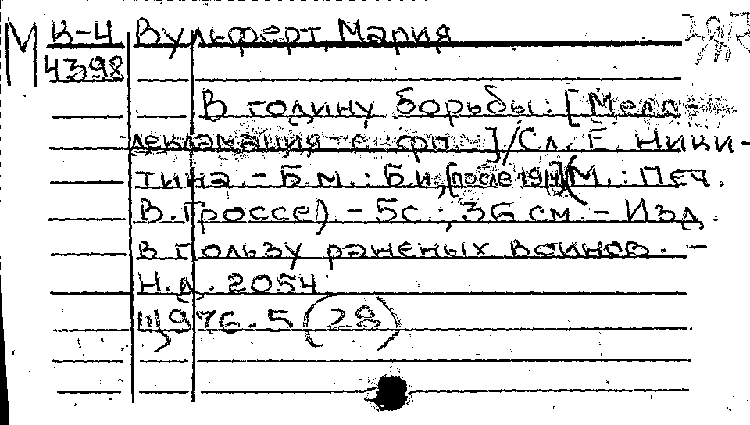 М К-4 Вульферт, Мария
4398
В годину борьбы: [Мело-
декламация с фп.] / Сл. Е. Ники-
тина. - Б.м. : Б.и., [после 1914] (М. : Печ.
В. Гроссе) - 5с. ; 36 см. - Изд.
в пользу раненых воинов. -
Н.д. 2054
Щ976.5(28)